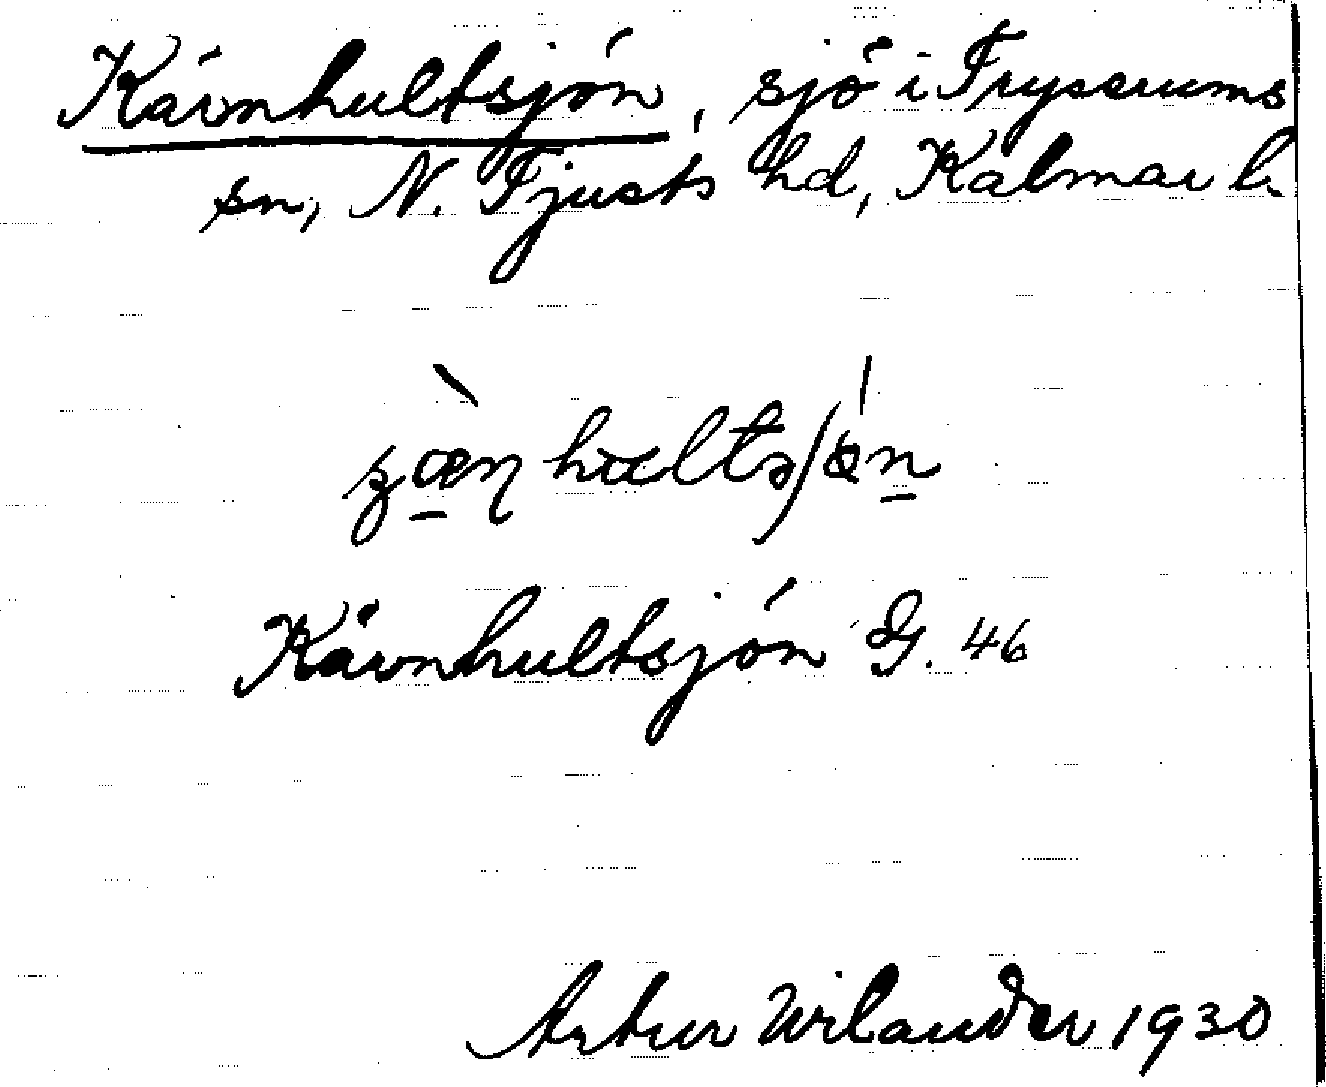 Kärnhultsjön, sjö i Tryserums
sn, N. Tjusts hd, Kalmar l.
Kärnhultsjön G. 46
Artur Wilander 1930